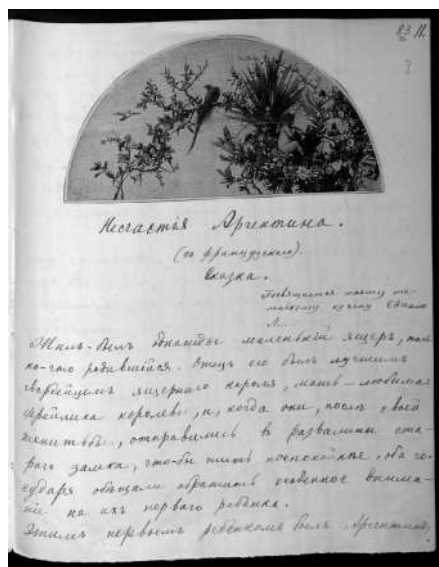 83 11.
3
Несчастія Аргентина.
(съ французскаго).
Сказка.
Посвящается моему ма-
ленькому кузену
Жилъ-былъ однажды маленькій ящеръ, толь-
ко-что родившійся. Отецъ его былъ лучшимъ
гвардейцемъ ящернаго короля, мать – любимая
фрейлина королевы, и, когда они, послѣ своей
женитьбы, отправились въ развалины ста-
раго замка, что-бы жить поспокойнѣе, оба го-
сударя обѣщали обратить особенное внима-
ніе на ихъ перваго ребенка.
Этимъ первымъ ребенкомъ былъ Аргентинъ,